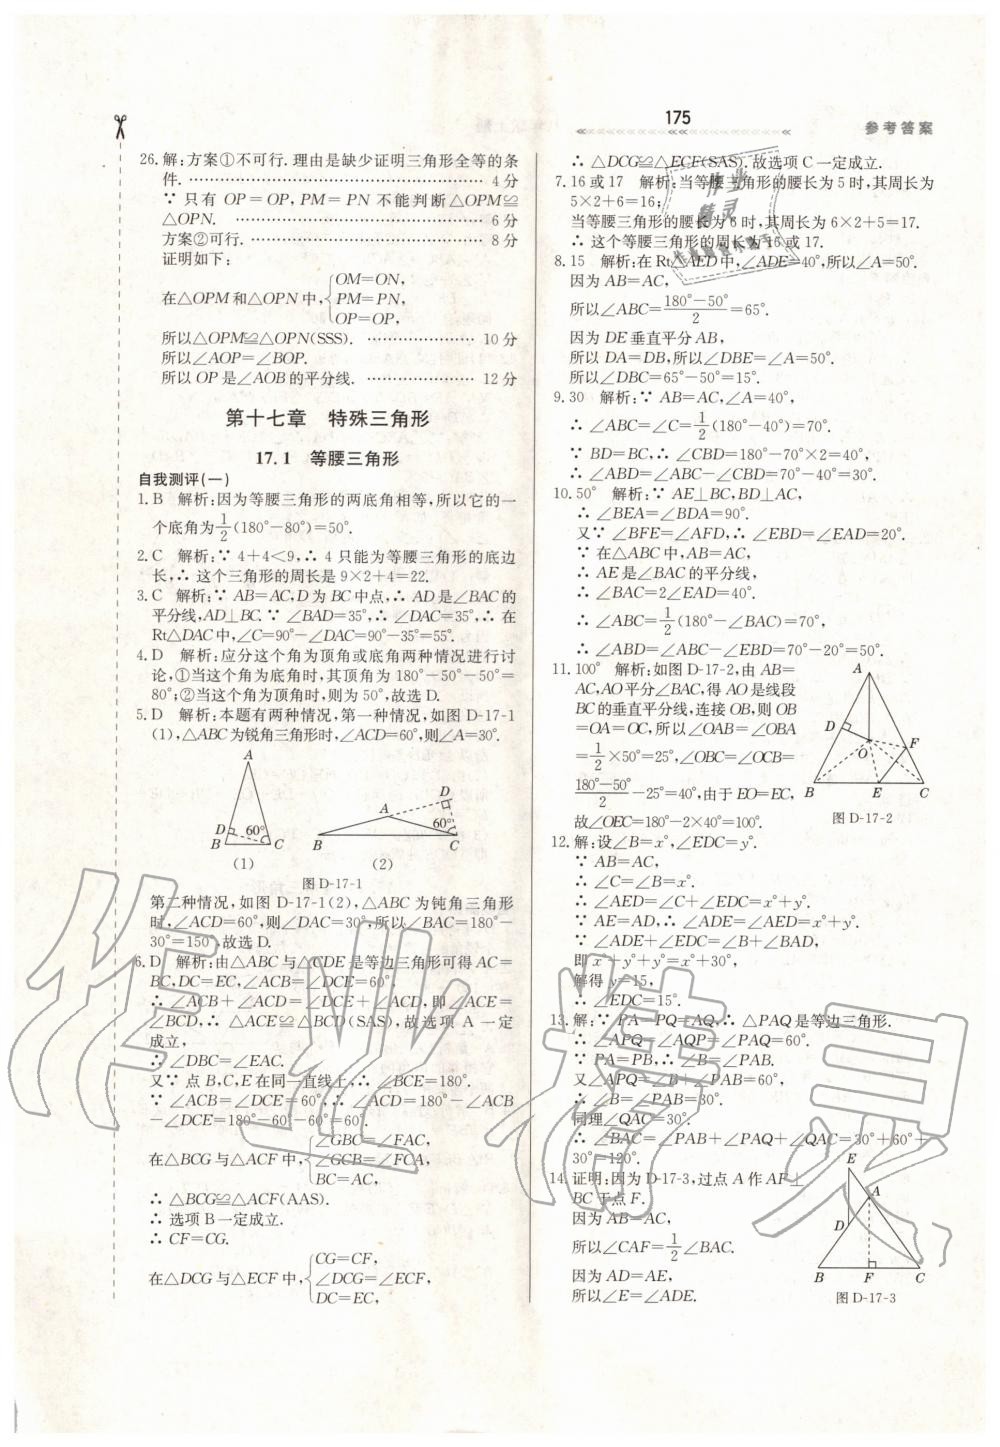 175
参考答案
26.解:方案①不可行.理由是缺少证明三角形全等的条
件. 4分
∵ 只有 OP=OP,PM=PN 不能判断△OPM≌
△OPN. 6分
方案②可行. 8分
证明如下:
在△OPM和△OPN中,{OM=ON,
PM=PN,
OP=OP,
所以△OPM≌△OPN(SSS). 10分
所以∠AOP=∠BOP.
所以OP是∠AOB的平分线. 12分
第十七章 特殊三角形
17.1 等腰三角形
自我测评(一)
1.B 解析:因为等腰三角形的两底角相等,所以它的一
个底角为1/2(180°-80°)=50°.
2.C 解析:∵ 4+4<9,∴ 4只能为等腰三角形的底边
长,∴ 这个三角形的周长是9×2+4=22.
3.C 解析:∵ AB=AC,D为BC中点,∴ AD是∠BAC的
平分线,AD⊥BC.∵ ∠BAD=35°,∴ ∠DAC=35°,∴ 在
Rt△DAC中,∠C=90°-∠DAC=90°-35°=55°.
4.D 解析:应分这个角为顶角或底角两种情况进行讨
论,①当这个角为底角时,其顶角为180°-50°-50°=
80°;②当这个角为顶角时,则为50°,故选D.
5.D 解析:本题有两种情况,第一种情况,如图D-17-1
(1),△ABC为锐角三角形时,∠ACD=60°,则∠A=30°.
A
D
60°
B C
(1)
D
A
60°
B C
(2)
图D-17-1
第二种情况,如图D-17-1(2),△ABC为钝角三角形
时,∠ACD=60°,则∠DAC=30°,所以∠BAC=180°-
30°=150°,故选D.
6.D 解析:由△ABC与△CDE是等边三角形可得AC=
BC,DC=EC,∠ACB=∠DCE=60°,
∴ ∠ACB+∠ACD=∠DCE+∠ACD,即∠ACE=
∠BCD,∴ △ACE≌△BCD(SAS),故选项A一定
成立,
∴ ∠DBC=∠EAC.
又∵ 点B,C,E在同一直线上,∴ ∠BCE=180°.
∵ ∠ACB=∠DCE=60°,∴ ∠ACD=180°-∠ACB
-∠DCE=180°-60°-60°=60°.
在△BCG与△ACF中,{∠GBC=∠FAC,
∠GCB=∠FCA,
BC=AC,
∴ △BCG≌△ACF(AAS).
∴ 选项B一定成立.
∴ CF=CG.
在△DCG与△ECF中,{CG=CF,
∠DCG=∠ECF,
DC=EC,
∴ △DCG≌△ECF(SAS).故选项C一定成立.
7.16或17 解析:当等腰三角形的腰长为5时,其周长为
5×2+6=16;
当等腰三角形的腰长为6时,其周长为6×2+5=17.
∴ 这个等腰三角形的周长为16或17.
8.15 解析:在Rt△AED中,∠ADE=40°,所以∠A=50°.
因为AB=AC,
所以∠ABC=(180°-50°)/2=65°.
因为DE垂直平分AB,
所以DA=DB,所以∠DBE=∠A=50°.
所以∠DBC=65°-50°=15°.
9.30 解析:∵ AB=AC,∠A=40°,
∴ ∠ABC=∠C=1/2(180°-40°)=70°.
∵ BD=BC,∴ ∠CBD=180°-70°×2=40°.
∴ ∠ABD=∠ABC-∠CBD=70°-40°=30°.
10.50° 解析:∵ AE⊥BC,BD⊥AC,
∴ ∠BEA=∠BDA=90°.
又∵ ∠BFE=∠AFD,∴ ∠EBD=∠EAD=20°.
∵ 在△ABC中,AB=AC,
∴ AE是∠BAC的平分线,
∴ ∠BAC=2∠EAD=40°.
∴ ∠ABC=1/2(180°-∠BAC)=70°,
∴ ∠ABD=∠ABC-∠EBD=70°-20°=50°.
11.100° 解析:如图D-17-2,由AB=
AC,AO平分∠BAC,得AO是线段
BC的垂直平分线,连接OB,则OB
=OA=OC,所以∠OAB=∠OBA
=1/2×50°=25°,∠OBC=∠OCB=
(180°-50°)/2-25°=40°,由于EO=EC,
故∠OEC=180°-2×40°=100°.
A
D
O
F
B E C
图D-17-2
12.解:设∠B=x°,∠EDC=y°.
∵ AB=AC,
∴ ∠C=∠B=x°.
∴ ∠AED=∠C+∠EDC=x°+y°.
∵ AE=AD,∴ ∠ADE=∠AED=x°+y°.
∵ ∠ADE+∠EDC=∠B+∠BAD,
即x°+y°+y°=x°+30°,
解得y=15,
∴ ∠EDC=15°.
13.解:∵ PA=PQ=AQ,∴ △PAQ是等边三角形.
∴ ∠APQ=∠AQP=∠PAQ=60°.
∵ PA=PB,∴ ∠B=∠PAB.
又∠APQ=∠B+∠PAB=60°,
∴ ∠B=∠PAB=30°.
同理∠QAC=30°.
∴ ∠BAC=∠PAB+∠PAQ+∠QAC=30°+60°+
30°=120°.
14.证明:因为D-17-3,过点A作AF⊥
BC于点F.
因为AB=AC,
所以∠CAF=1/2∠BAC.
因为AD=AE,
所以∠E=∠ADE.
E
A
D
B F C
图D-17-3
作业精灵